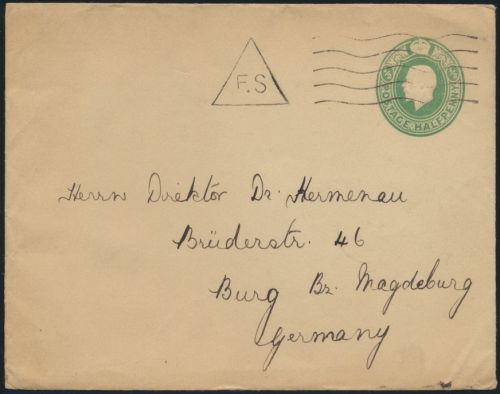 F.S
POSTAGE. HALFPENNY
Herrn Direktor Dr. Hermenau
Brüderstr. 46
Burg Bz. Magdeburg
Germany